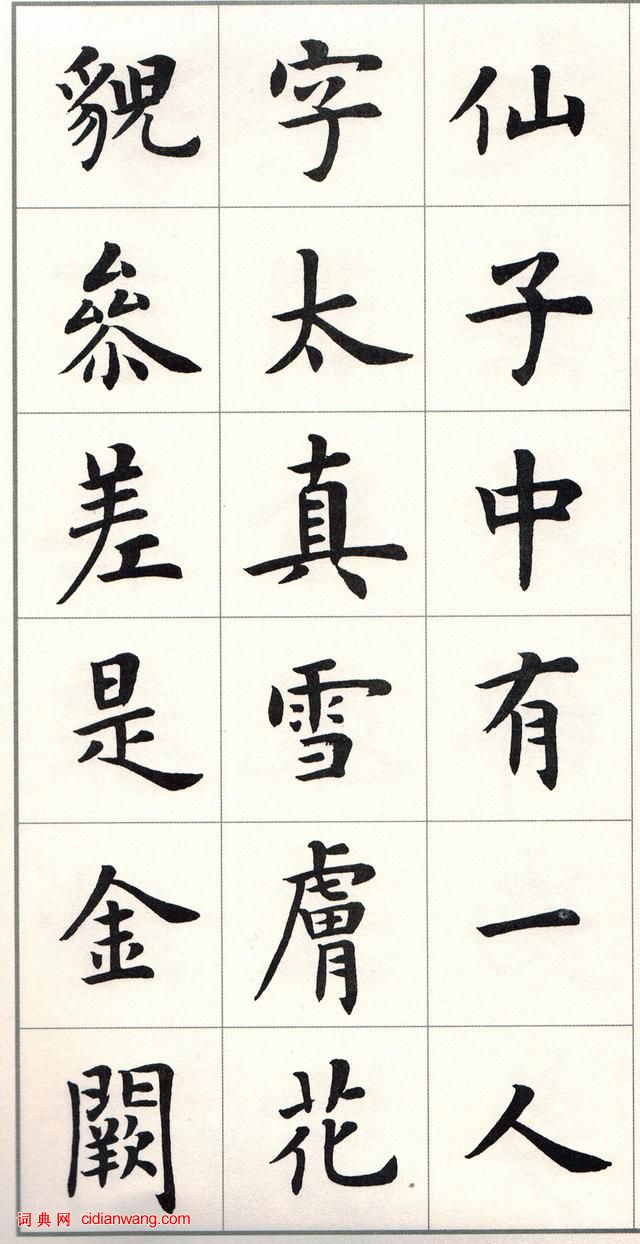 仙子中有一人
字太真雪膚花
貌參差是金闕
词典网 cidianwang.com